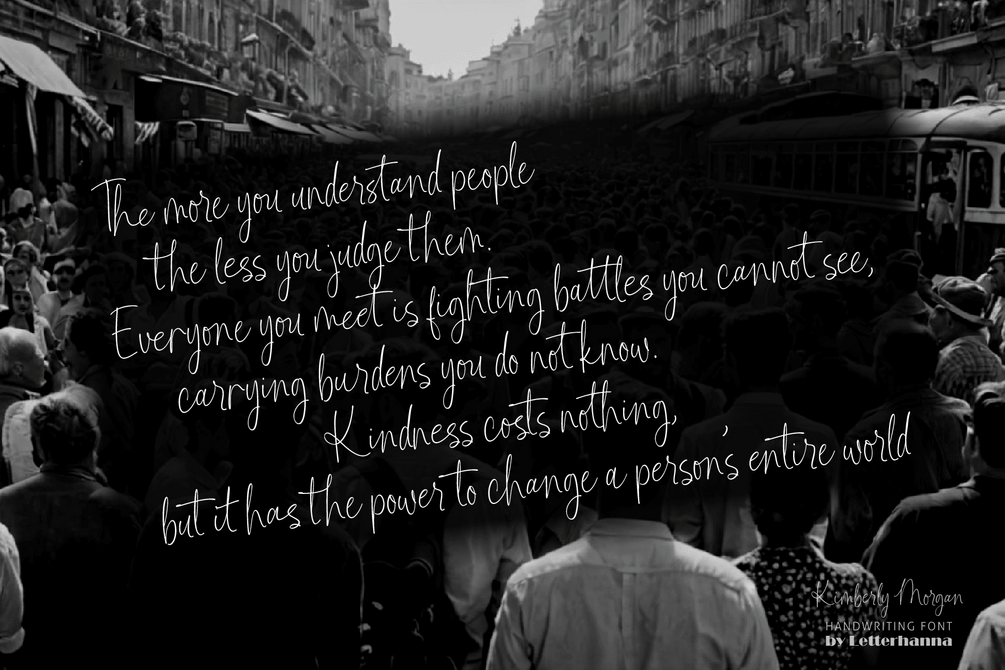 The more you understand people
the less you judge them.
Everyone you meet is fighting battles you cannot see,
carrying burdens you do not know.
Kindness costs nothing,
but it has the power to change a person's entire world
Kimberly Morgan
HANDWRITING FONT
by Letterhanna